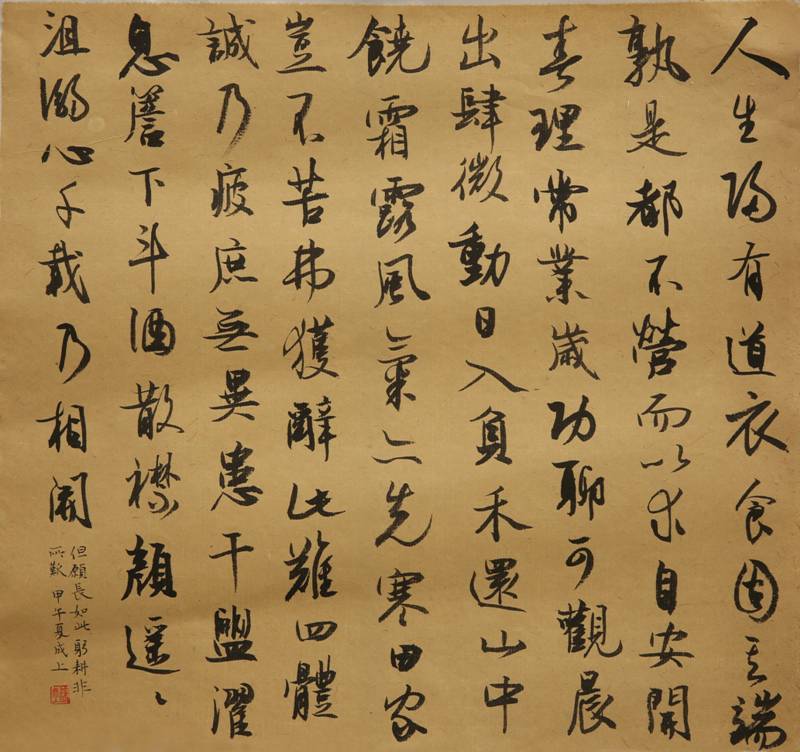 人生归有道衣食固其端
孰是都不營而以求自安開
春理常業歲功聊可觀晨
出肆微動日入負禾還山中
饒霜露風氣亦先寒田家
豈不苦弗獲辭此難四體
誠乃疲庶无異患干盥濯
息簷下斗酒散襟顏遥〻
沮溺心千載乃相關
但願長如此躬耕非
所歎 甲午夏成上